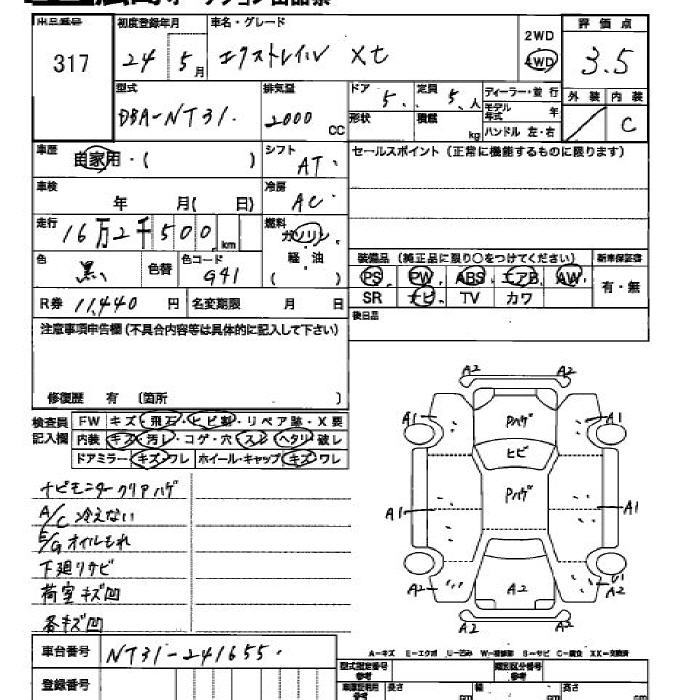 出品番号 初度登録年月 車名・グレード 2WD 評価点
317 24 5月 エクストレイル Xt 4WD 3.5
型式 排気量 ドア 5. 定員 5.人 ディーラー・並行 外装 内装
DBA-NT31. 2000 CC 形状 積載 kg モデル年式 年 C
ハンドル 左・右
車歴 自家用・( ) シフト AT. セールスポイント(正常に機能するものに限ります)
車検 年 月( 日) 冷房 AC.
走行 16万2千500.km 燃料 ガソリン.
軽・油
( )
色 黒. 色替 色コード G41 装備品(純正品に限り○をつけてください) 新車保証書
PS PW ABS エアB AW 有・無
R券 11,440 円 名変期限 月 日 SR ナビ TV カワ
後日品
注意事項申告欄(不具合内容等は具体的に記入して下さい)
修復歴 有 〔箇所 〕
検査員記入欄 FW キズ・飛石・ヒビ割・リペア跡・X要
内装 キズ・汚レ・コゲ・穴・スレ・ヘタリ・破レ
ドアミラー・キズ・ワレ ホイール・キャップ・キズ・ワレ
ナビモニタークリアハゲ
A/C冷えない
E/Gオイルもれ
下廻リサビ
荷室キズ凹
各キズ凹
A2 A2
A1 Pハゲ A1
ヒビ
Pハゲ
A1 A1
A2 A2 A2
A2 A2
A-キズ E-エクボ U-凹ミ W-補修跡 S-サビ C-腐食 XX-交換済
車台番号 NT31-241655.
登録番号
型式指定番号 参考 類別区分番号 参考
長さ cm 幅 cm 高さ cm